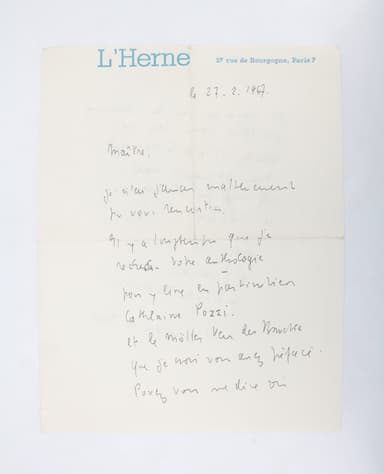 L'Herne
27 rue de Bourgogne, Paris 7
le 27. 2. 1967.
Maître.
je n'ai jamais malheureusement
pu vous rencontrer.
Il y a longtemps que je
recherche votre anthologie
pour y lire en particulier
Catherine Pozzi.
et le Möller Van den Bruck
que je crois vous avez préfacé.
Pouvez vous me dire où